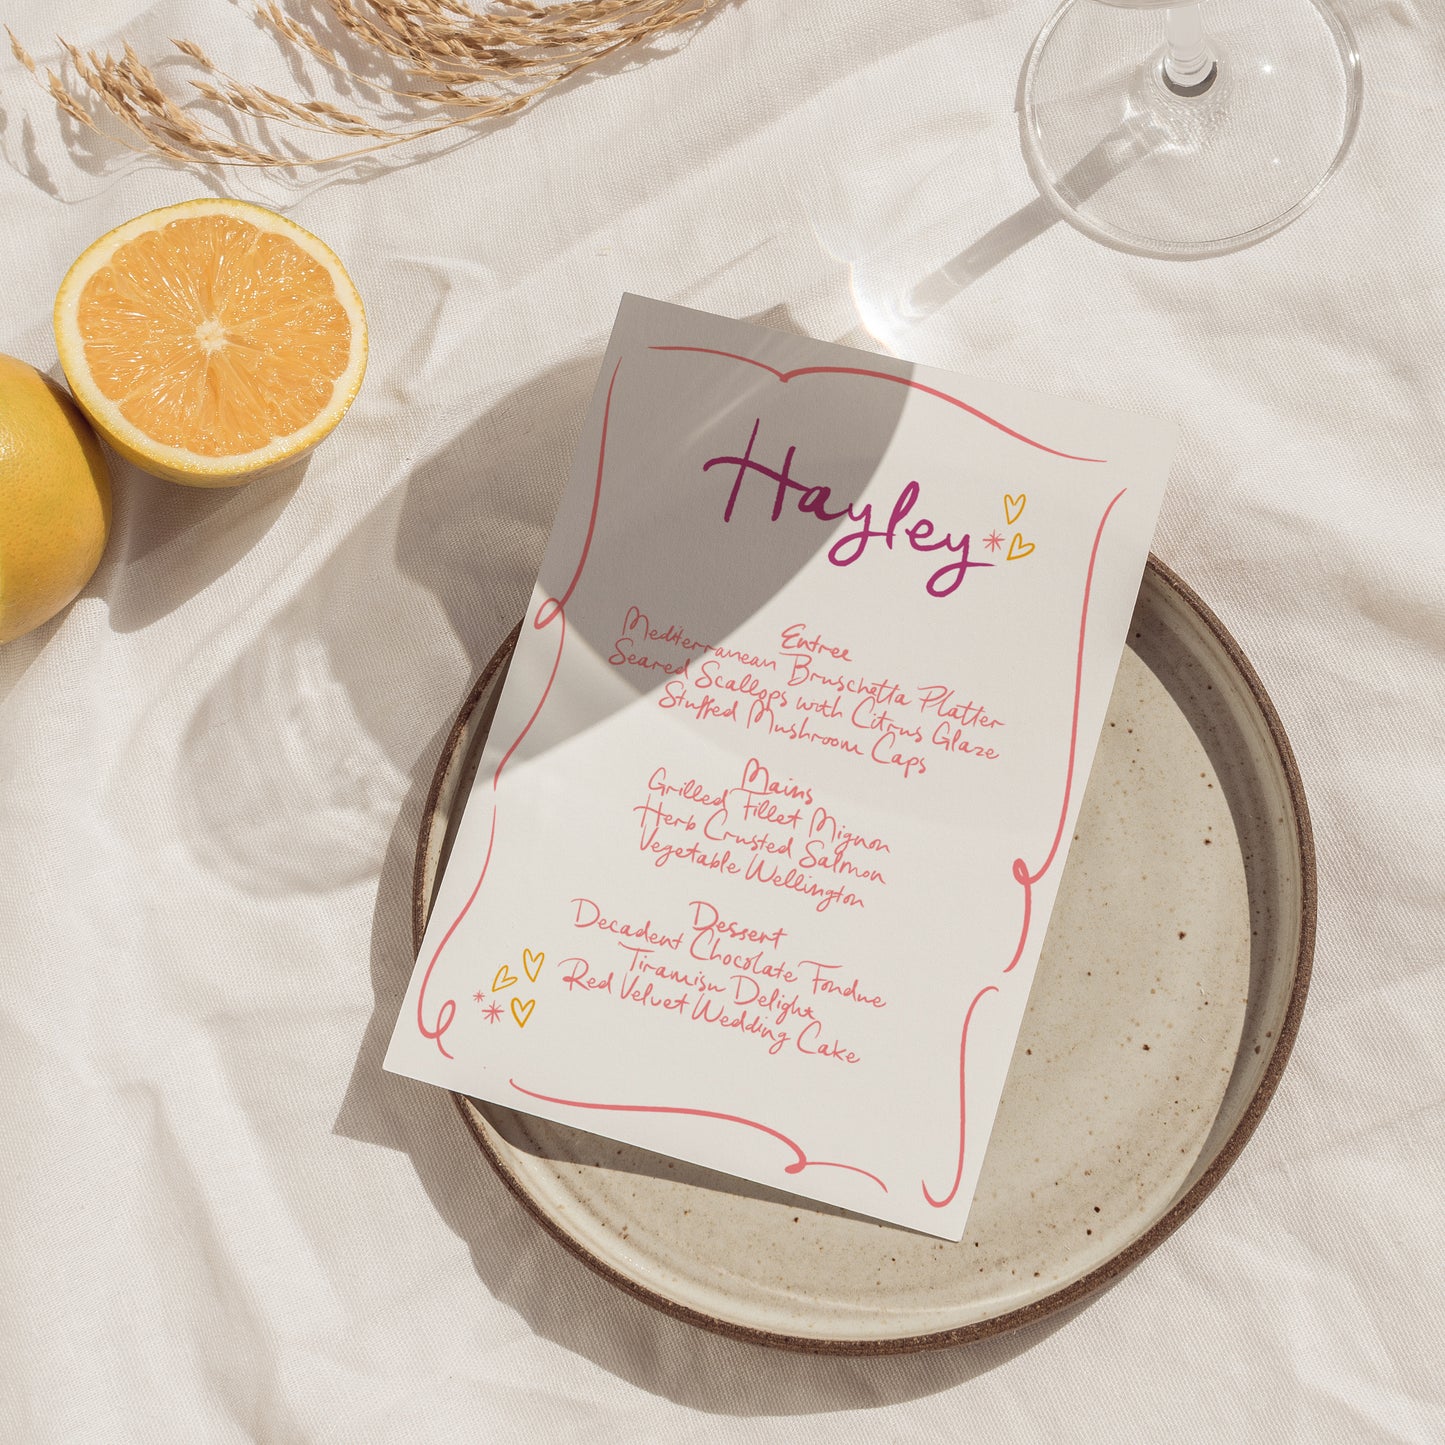 Hayley
Entree
Mediterranean Bruschetta Platter
Seared Scallops with Citrus Glaze
Stuffed Mushroom Caps
Mains
Grilled Fillet Mignon
Herb Crusted Salmon
Vegetable Wellington
Dessert
Decadent Chocolate Fondue
Tiramisu Delight
Red Velvet Wedding Cake